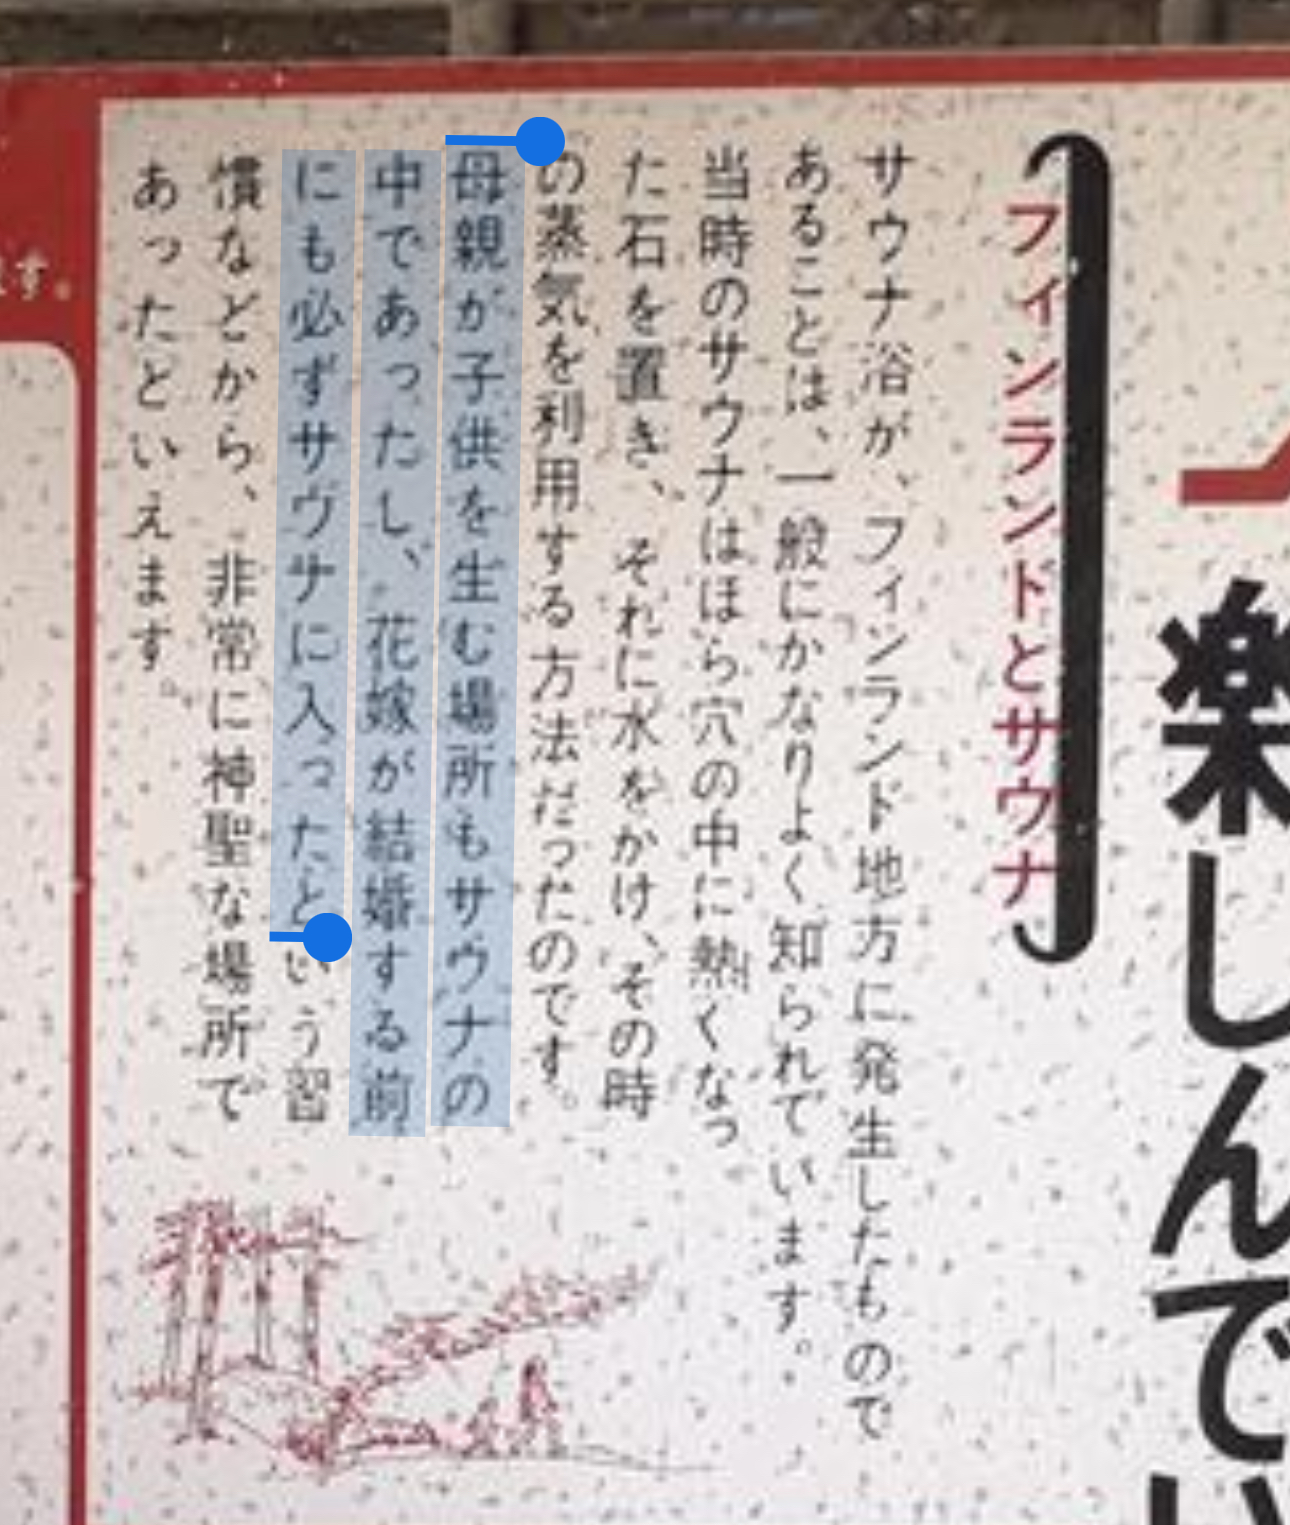 楽しんでい
フィンランドとサウナ
サウナ浴が、フィンランド地方に発生したもので
あることは、一般にかなりよく知られています。
当時のサウナはほら穴の中に熱くなっ
た石を置き、それに水をかけ、その時
の蒸気を利用する方法だったのです。
母親が子供を生む場所もサウナの
中であったし、花嫁が結婚する前
にも必ずサヴサに入ったという習
慣などから、非常に神聖な場所で
あったといえます。
ます。